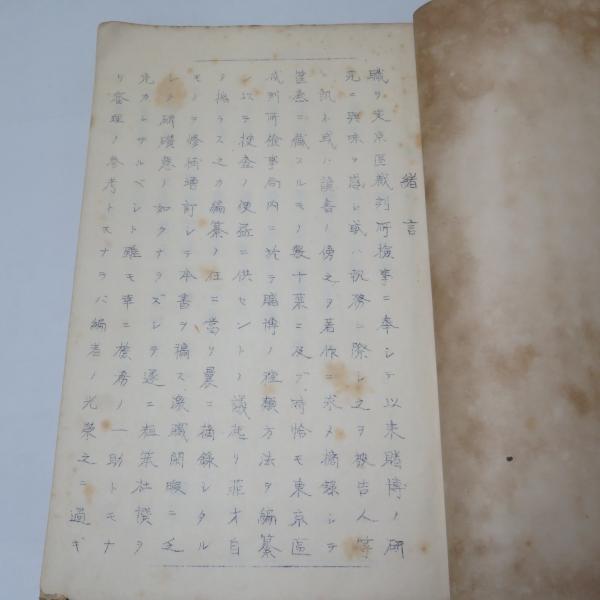 緒言
職ヲ東京區裁判所檢事ニ奉シテ以来賭博ノ研
究ニ興味ヲ感シ或ハ執務ニ際シ之ヲ被告人等
ニ訊ネ或ハ讀書ノ傍之ヲ著作ニ求メ摘錄シテ
筐底ニ藏スルモノ數十葉ニ及ブ時恰モ東京區
裁判所檢事局内ニ於テ賭博ノ種類方法ヲ編纂
シ以テ捜査ノ便益ニ供セントノ議起リ菲才自
ラ揣ラス之カ編纂ノ任ニ當リ曩ニ摘錄シタル
モノヲ修補増訂シテ本書ヲ編ス 職閑暇ニ乏
シク研鑽意ノ如クナラズシテ遂ニ粗笨杜撰ヲ
免カレサルベシト雖モ幸ニ機務ノ一助トモナ
リ審理ノ参考トスナラバ編者ノ光榮之ニ過ギ